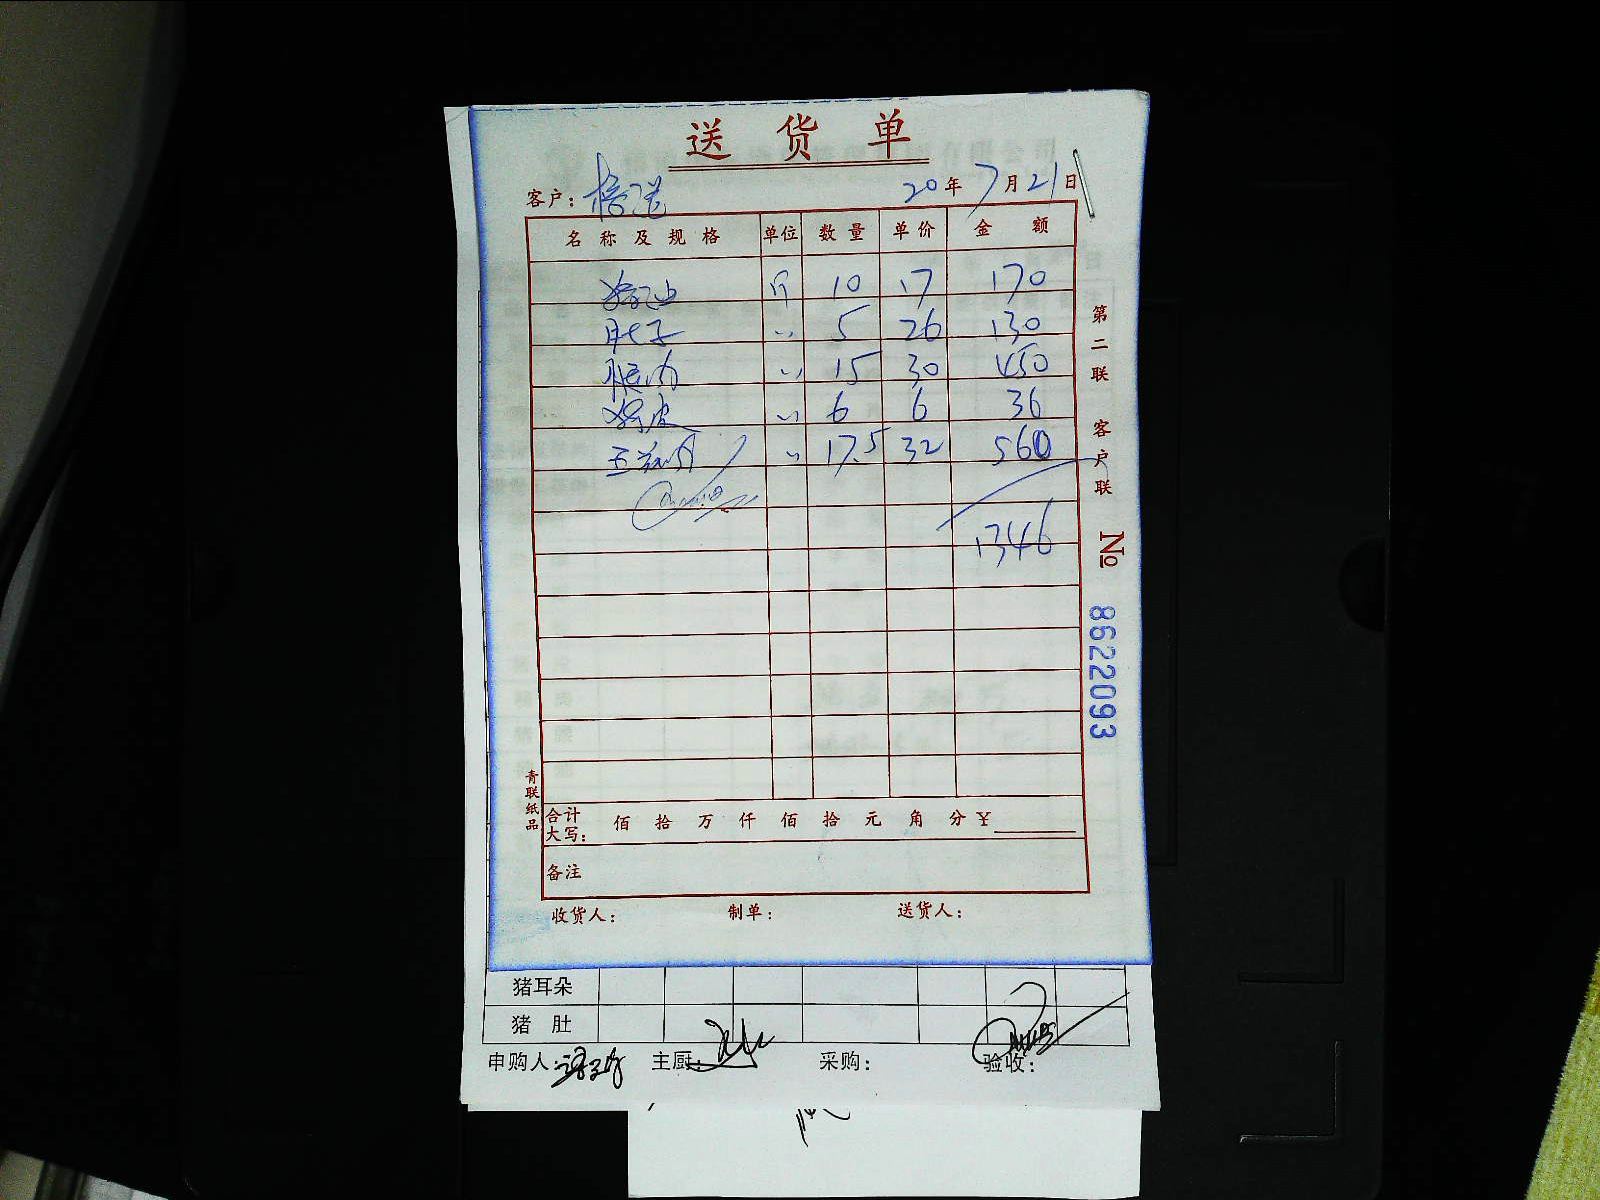 送货单
客户： 20年7月21日
名称及规格 单位 数量 单价 金额
斤 10 17 170
肚子 〃 5 26 130
腿肉 〃 15 30 450
猪皮 〃 6 6 36
五花肉 〃 17.5 32 560
1346
合计大写： 佰 拾 万 仟 佰 拾 元 角 分 ¥
备注
收货人： 制单： 送货人：
第二联 客户联
№ 8622093
青联纸品
猪耳朵
猪肚
申购人： 主厨： 采购： 验收：